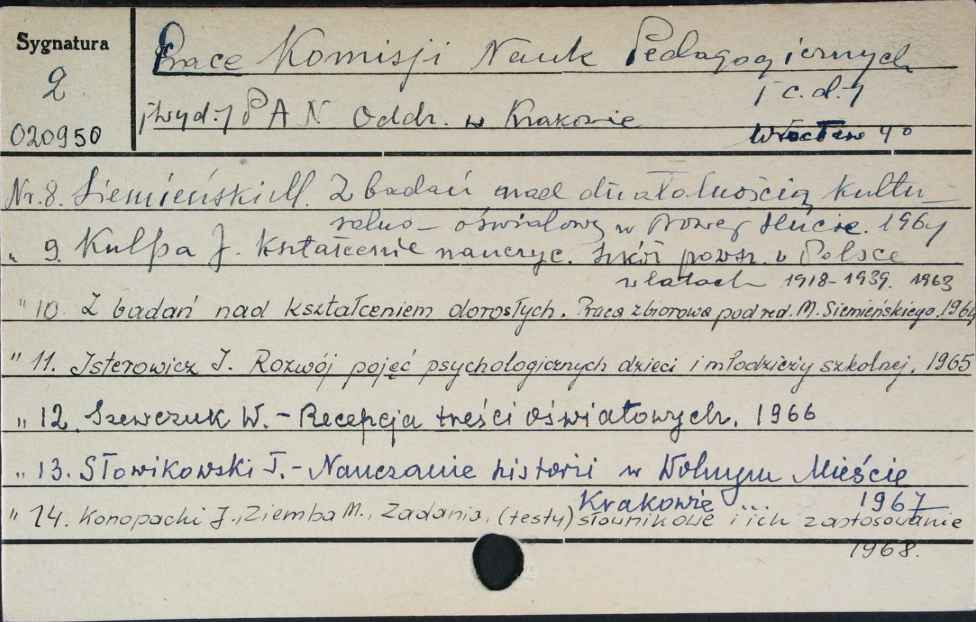 Sygnatura
2
020950
Prace Komisji Nauk Pedagogicznych
/c.d./
/wyd:/ PAN Oddz. w Krakowie
Wrocław 4°
Nr. 8. Siemieński M. Z badań nad działalnością kultu-
ralno-oświatową w Nowej Hucie. 1964
" 9. Kulpa J. Kształcenie nauczyc. szkół powsz. w Polsce
w latach 1918-1939. 1963
" 10. Z badań nad kształceniem dorosłych. Praca zbiorowa pod red. M. Siemieńskiego. 1964
" 11. Isterowicz J. Rozwój pojęć psychologicznych dzieci i młodzieży szkolnej. 1965
" 12. Szewczuk W. - Recepcja treści oświatowych. 1966
" 13. Słowikowski T. - Nauczanie historii w Wolnym Mieście
Krakowie ... 1967
" 14. Konopacki J., Ziemba M., Zadania (testy) słownikowe i ich zastosowanie
1968.